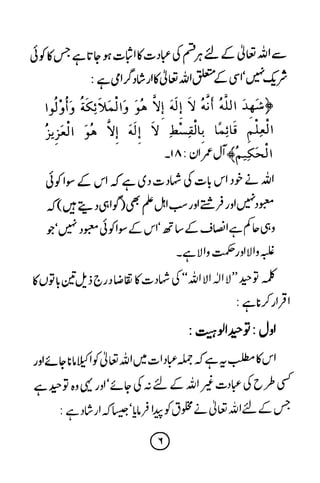 سے اللہ تعالیٰ کے لئے ہر قسم کی عبادت کا اثبات ہو جاتا ہے جس کا کوئی
شریک نہیں‘ اسی کے متعلق اللہ تعالیٰ کا ارشاد گرامی ہے :
﴿شَهِدَ اللَّهُ أَنَّهُ لاَ إِلَهَ إِلاَّ هُوَ وَالْمَلاَئِكَةُ وَأُوْلُوا
الْعِلْمِ قَائِمًا بِالْقِسْطِ لاَ إِلَهَ إِلاَّ هُوَ الْعَزِيزُ
الْحَكِيمُ﴾ آل عمران : ۱۸۔
اللہ نے خود اس بات کی شہادت دی ہے کہ اس کے سوا کوئی
معبود نہیں اور فرشتے اور سب اہل علم بھی (گواہی دیتے ہیں) کہ
وہی حاکم ہے انصاف کے ساتھ‘ اس کے سوا کوئی معبود نہیں‘ جو
غلبہ والا اور حکمت والا ہے۔
کلمہ توحید ”لا الہ الا اللہ“ کی شہادت کا تقاضا درج ذیل تین باتوں کا
اقرار کرنا ہے :
اول : توحید الوہیت :
اس کا مطلب یہ ہے کہ جملہ عبادات میں اللہ تعالیٰ کو اکیلا مانا جائے اور
کسی طرح کی عبادت غیر اللہ کے لئے نہ کی جائے‘ اور یہی وہ توحید ہے
جس کے لئے اللہ تعالیٰ نے مخلوق کو پیدا فرمایا‘ جیسا کہ ارشاد ہے :
۶